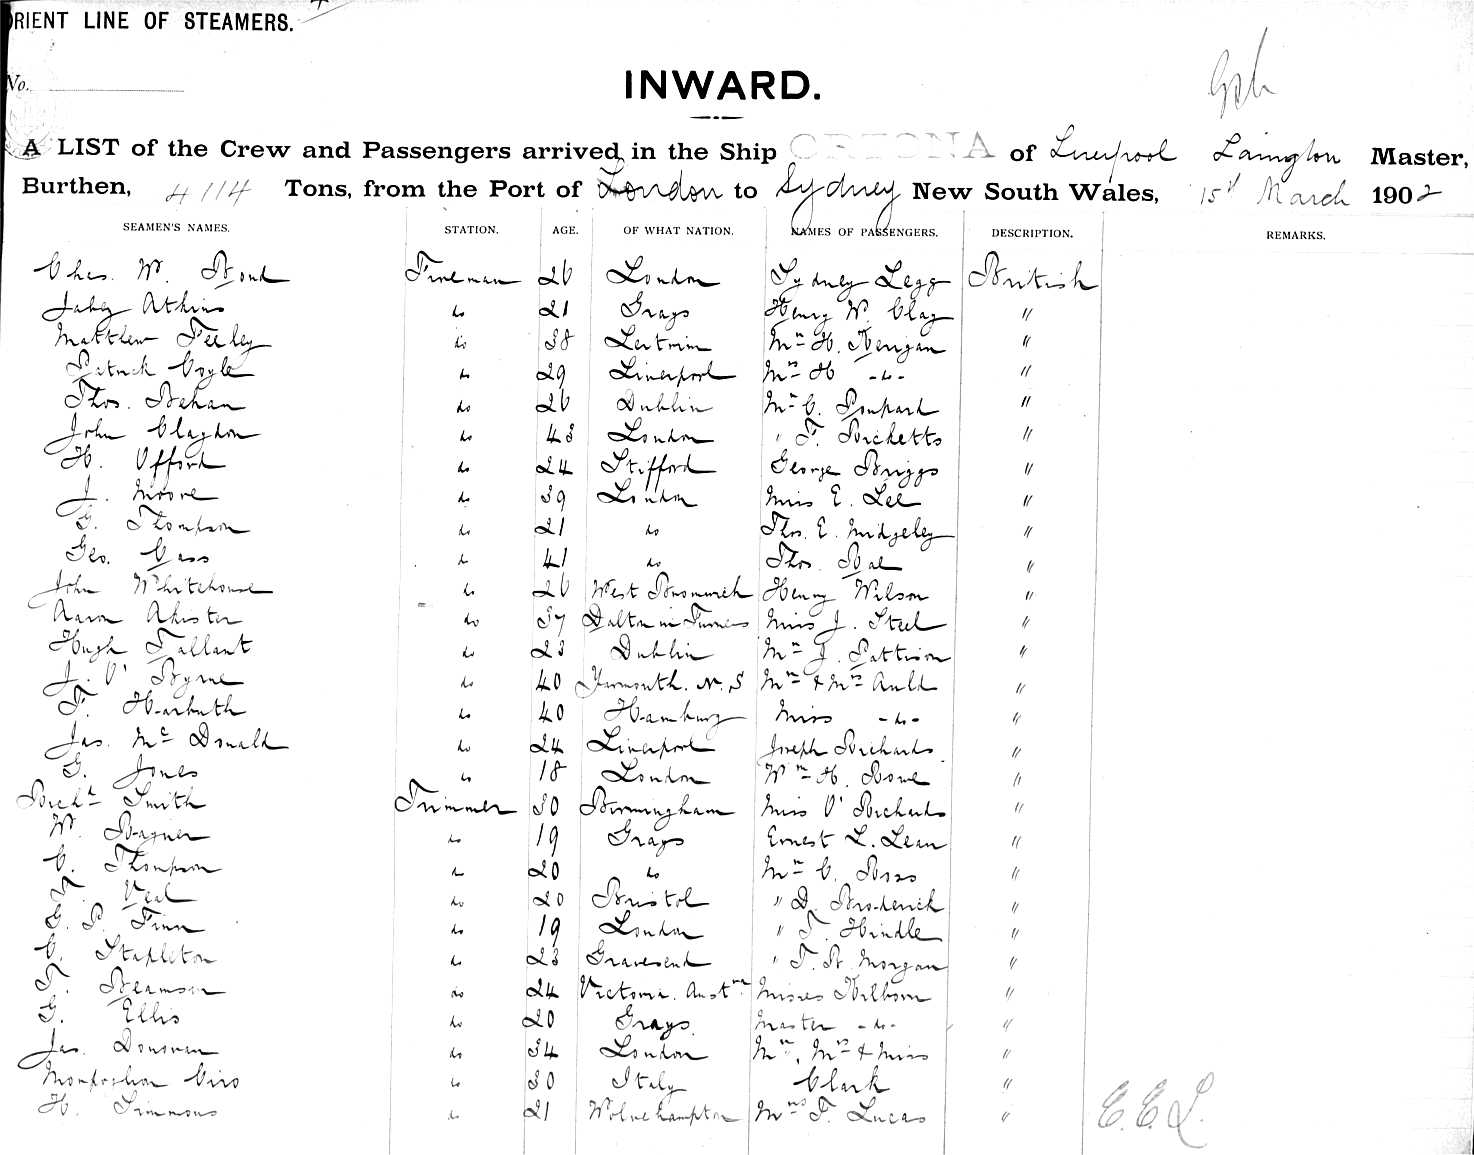 ORIENT LINE OF STEAMERS.
No.
INWARD.
A LIST of the Crew and Passengers arrived in the Ship ORTONA of Liverpool Laington Master,
Burthen, 4114 Tons, from the Port of London to Sydney New South Wales, 15th March 1902
SEAMEN'S NAMES. STATION. AGE. OF WHAT NATION. NAMES OF PASSENGERS. DESCRIPTION. REMARKS.
Chas. W. Bond Fireman 26 London Sydney Legg British
Jabez Atkins do 21 Grays Henry W. Clay "
Matthew Feeley do 38 Leitrim Mr H. Kerrigan "
Patrick Coyle do 29 Liverpool Mrs H -do- "
Thos. Behan do 26 Dublin Mr C. Poupard "
John Claydon do 43 London " F. Ricketts "
H. Offord do 24 Stifford George Briggs "
J. Moore do 39 London Miss E. Lee "
G. Thompson do 21 do Thos. E. Midgeley "
Geo. Cass do 41 do Thos. Rae "
John Whitehouse do 26 West Bromwich Henry Wilson "
Aaron Akister do 37 Dalton in Furness Miss J. Steel "
Hugh Tallant do 23 Dublin Mr J. Pattison "
J. O' Byrne do 40 Yarmouth. N.S Mr & Mrs Auld "
F. Harbuth do 40 Hamburg Miss -do- "
Jas. Mc Donald do 24 Liverpool Joseph Richards "
G. Jones do 18 London Wm H. Rowe "
Richd Smith Trimmer 30 Birmingham Miss O' Richards "
W. Rayner do 19 Grays Ernest L. Lean "
C. Thompson do 20 do Mr C. Ross "
T. Veal do 20 Bristol " D. Broderick "
G. P. Finn do 19 London " T. Hindle "
C. Stapleton do 23 Gravesend " T. R. Morgan "
T. Beamson do 24 Victoria. Austrn Misses Kilborn "
G. Ellis do 20 Grays Master -do- "
Jas. Donovan do 34 London Mr, Mrs & Miss "
Ciro do 30 Italy Clark "
H. Simmons do 21 Wolvehampton Mrs F. Lucas " E.E.L